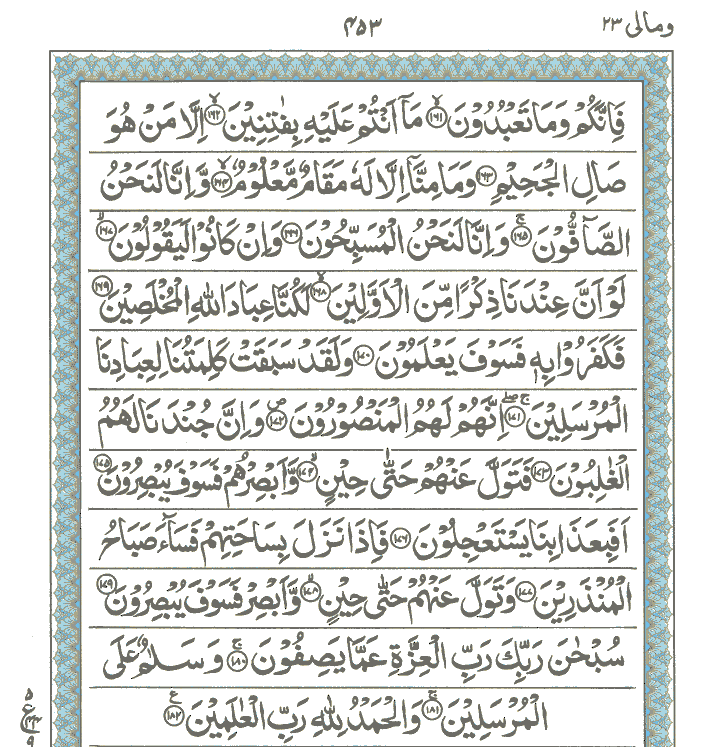 ومالی ۲۳
۴۵۳
فَاِنَّكُمْ وَمَا تَعْبُدُوْنَ ﴿۱۶۱﴾ مَاۤ اَنْتُمْ عَلَیْهِ بِفٰتِنِیْنَ ﴿۱۶۲﴾ اِلَّا مَنْ هُوَ
صَالِ الْجَحِیْمِ ﴿۱۶۳﴾ وَمَا مِنَّاۤ اِلَّا لَهٗ مَقَامٌ مَّعْلُوْمٌ ﴿۱۶۴﴾ وَّاِنَّا لَنَحْنُ
الصَّآفُّوْنَ ﴿۱۶۵﴾ وَاِنَّا لَنَحْنُ الْمُسَبِّحُوْنَ ﴿۱۶۶﴾ وَاِنْ كَانُوْا لَیَقُوْلُوْنَ ﴿۱۶۷﴾
لَوْ اَنَّ عِنْدَنَا ذِكْرًا مِّنَ الْاَوَّلِیْنَ ﴿۱۶۸﴾ لَكُنَّا عِبَادَ اللّٰهِ الْمُخْلَصِیْنَ ﴿۱۶۹﴾
فَكَفَرُوْا بِهٖ فَسَوْفَ یَعْلَمُوْنَ ﴿۱۷۰﴾ وَلَقَدْ سَبَقَتْ كَلِمَتُنَا لِعِبَادِنَا
الْمُرْسَلِیْنَ ﴿۱۷۱﴾ اِنَّهُمْ لَهُمُ الْمَنْصُوْرُوْنَ ﴿۱۷۲﴾ وَاِنَّ جُنْدَنَا لَهُمُ
الْغٰلِبُوْنَ ﴿۱۷۳﴾ فَتَوَلَّ عَنْهُمْ حَتّٰی حِیْنٍ ﴿۱۷۴﴾ وَّاَبْصِرْهُمْ فَسَوْفَ یُبْصِرُوْنَ ﴿۱۷۵﴾
اَفَبِعَذَابِنَا یَسْتَعْجِلُوْنَ ﴿۱۷۶﴾ فَاِذَا نَزَلَ بِسَاحَتِهِمْ فَسَآءَ صَبَاحُ
الْمُنْذَرِیْنَ ﴿۱۷۷﴾ وَتَوَلَّ عَنْهُمْ حَتّٰی حِیْنٍ ﴿۱۷۸﴾ وَّاَبْصِرْ فَسَوْفَ یُبْصِرُوْنَ ﴿۱۷۹﴾
سُبْحٰنَ رَبِّكَ رَبِّ الْعِزَّةِ عَمَّا یَصِفُوْنَ ﴿۱۸۰﴾ وَسَلٰمٌ عَلَی
الْمُرْسَلِیْنَ ﴿۱۸۱﴾ وَالْحَمْدُ لِلّٰهِ رَبِّ الْعٰلَمِیْنَ ﴿۱۸۲﴾
۵
ع
۹